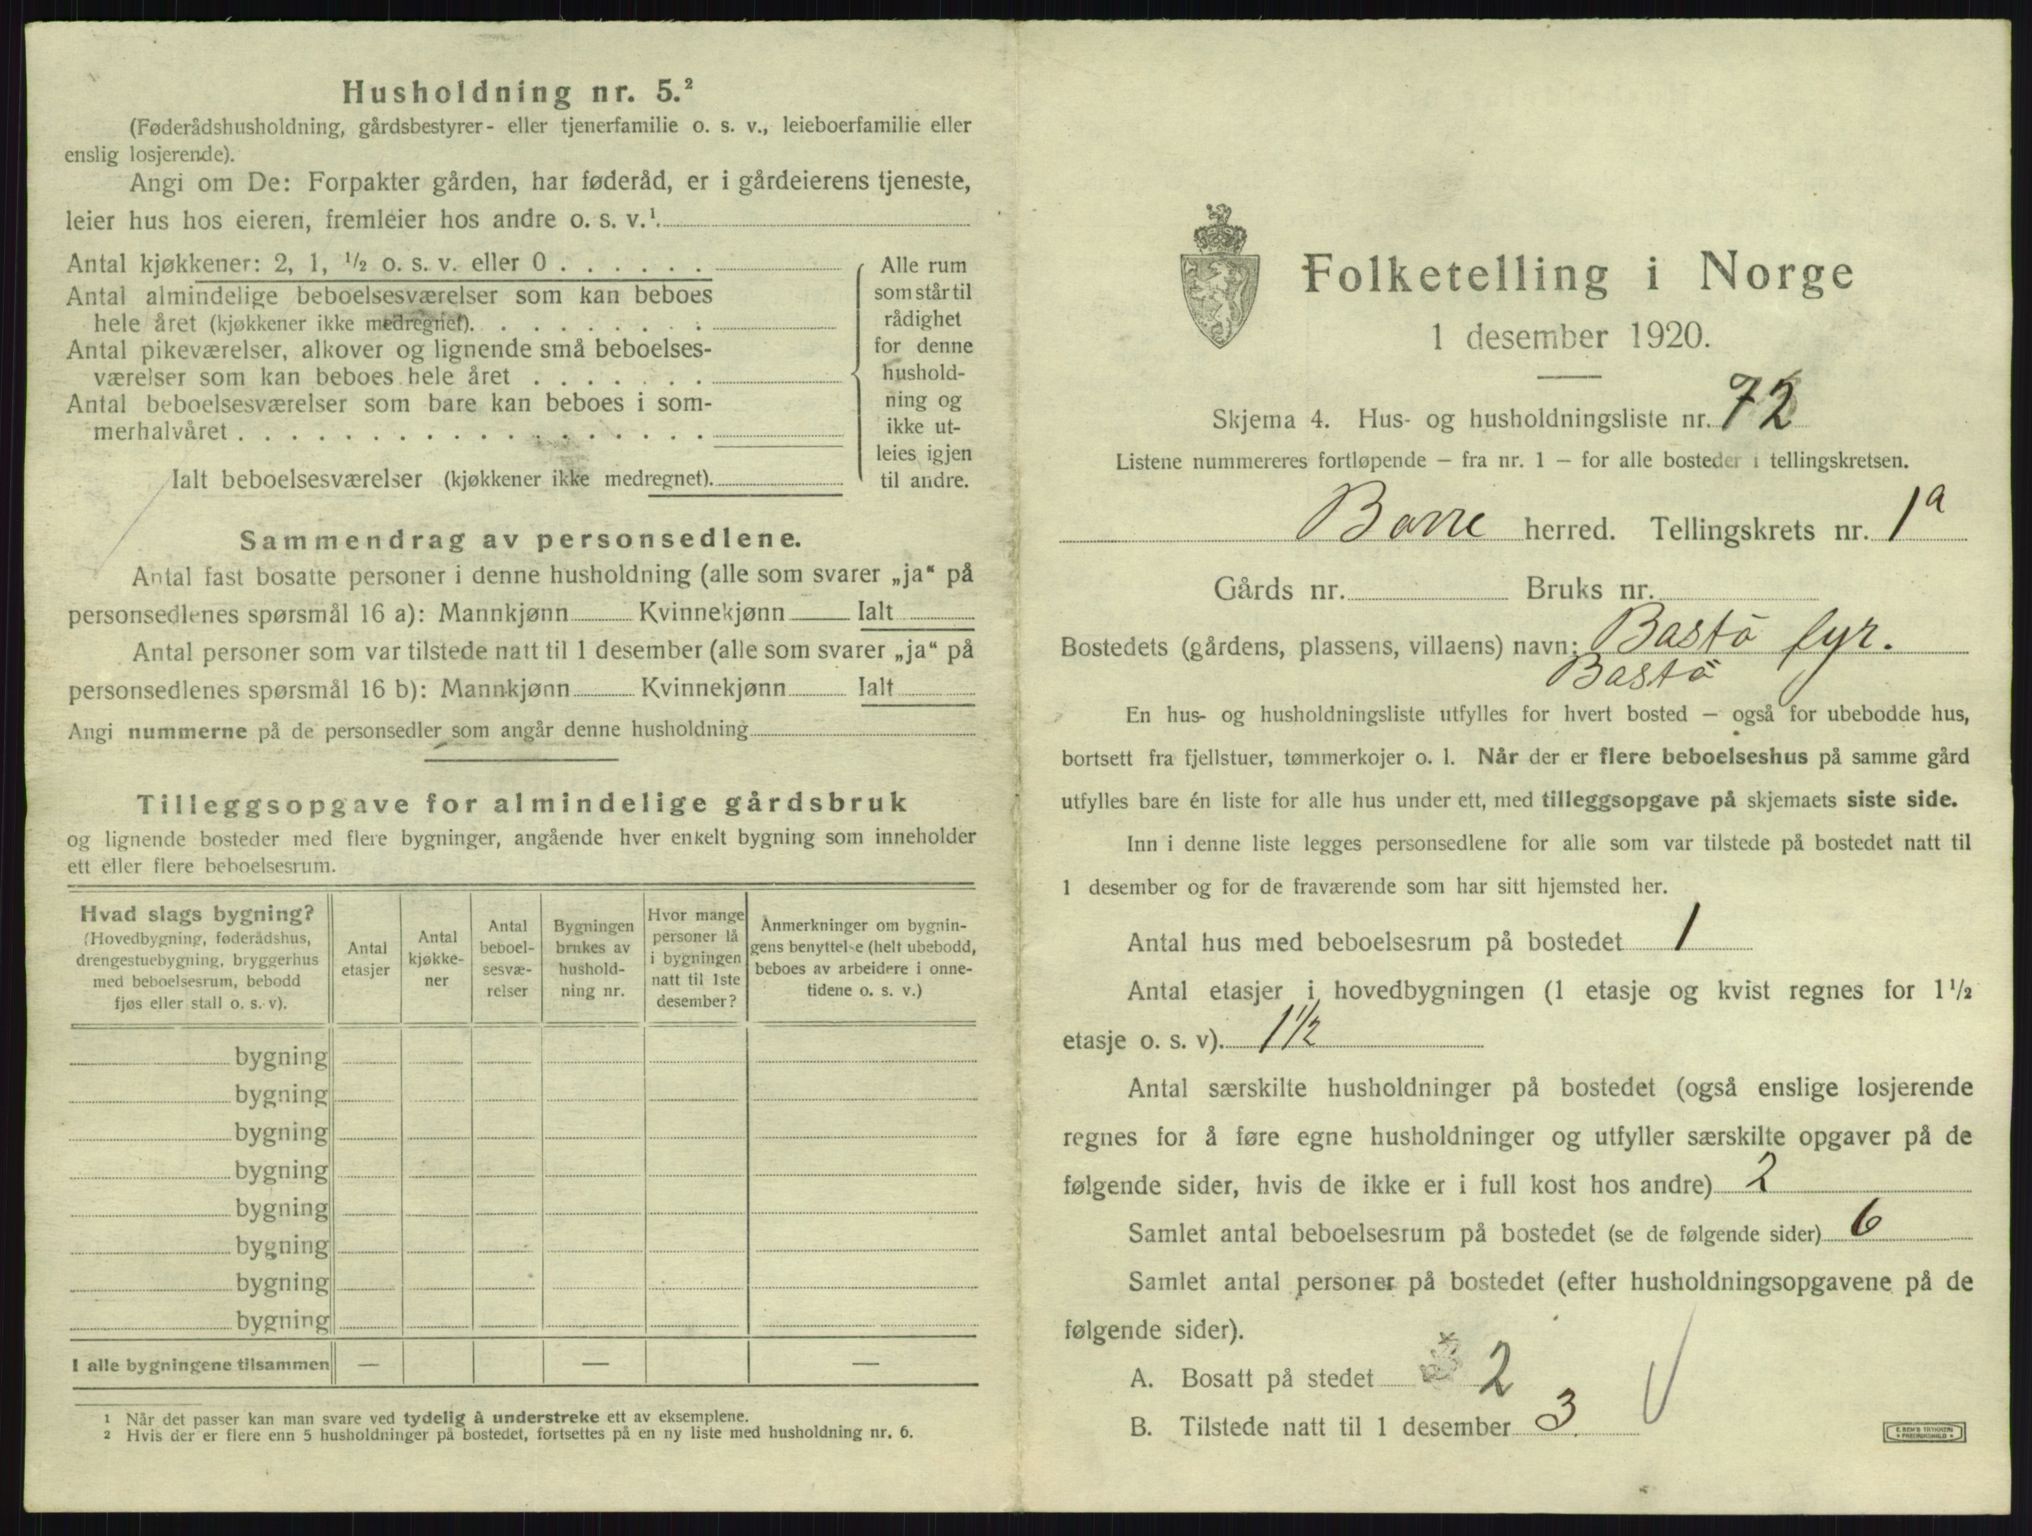 Husholdning nr. 5.²
(Føderådshusholdning, gårdsbestyrer- eller tjenerfamilie o. s. v., leieboerfamilie eller
enslig losjerende).
Angi om De: Forpakter gården, har føderåd, er i gårdeierens tjeneste,
leier hus hos eieren, fremleier hos andre o. s. v.¹.
Antal kjøkkener: 2, 1, ½ o. s. v. eller 0 . . . . . .
Antal almindelige beboelsesværelser som kan beboes
hele året (kjøkkener ikke medregnet). . . . . . . . .
Antal pikeværelser, alkover og lignende små beboelses-
værelser som kan beboes hele året . . . . . . .
Antal beboelsesværelser som bare kan beboes i som-
merhalvåret . . . . . . . . . . . . . . . . . .
Ialt beboelsesværelser (kjøkkener ikke medregnet).
Alle rum
som står til
rådighet
for denne
hushold-
ning og
ikke ut-
leies igjen
til andre.
Sammendrag av personsedlene.
Antal fast bosatte personer i denne husholdning (alle som svarer „ja“ på
personsedlenes spørsmål 16 a): Mannkjønn Kvinnekjønn Ialt
Antal personer som var tilstede natt til 1 desember (alle som svarer „ja“ på
personsedlenes spørsmål 16 b): Mannkjønn Kvinnekjønn Ialt
Angi nummerne på de personsedler som angår denne husholdning
Tilleggsopgave for almindelige gårdsbruk
og lignende bosteder med flere bygninger, angående hver enkelt bygning som inneholder
ett eller flere beboelsesrum.
Hvad slags bygning?
(Hovedbygning, føderådshus,
drengestuebygning, bryggerhus
med beboelsesrum, bebodd
fjøs eller stall o. s. v).
Antal
etasjer
Antal
kjøkke-
ner
Antal
beboel-
sesvæ-
relser
Bygningen
brukes av
hushold-
ning nr.
Hvor mange
personer lå
i bygningen
natt til 1ste
desember?
Anmerkninger om bygnin-
gens benyttelse (helt ubebodd,
beboes av arbeidere i onne-
tidene o. s. v.)
bygning
bygning
bygning
bygning
bygning
bygning
bygning
bygning
I alle bygningene tilsammen — — —
1 Når det passer kan man svare ved tydelig å understreke ett av eksemplene.
2 Hvis der er flere enn 5 husholdninger på bostedet, fortsettes på en ny liste med husholdning nr. 6.
Folketelling i Norge
1 desember 1920.
Skjema 4. Hus- og husholdningsliste nr. 72
Listene nummereres fortløpende – fra nr. 1 – for alle bosteder i tellingskretsen.
Borre herred. Tellingskrets nr. 1a
Gårds nr. Bruks nr.
Bostedets (gårdens, plassens, villaens) navn: Bastø fyr.
Bastø
En hus- og husholdningsliste utfylles for hvert bosted – også for ubebodde hus,
bortsett fra fjellstuer, tømmerkojer o. l. Når der er flere beboelseshus på samme gård
utfylles bare én liste for alle hus under ett, med tilleggsopgave på skjemaets siste side.
Inn i denne liste legges personsedlene for alle som var tilstede på bostedet natt til
1 desember og for de fraværende som har sitt hjemsted her.
Antal hus med beboelsesrum på bostedet 1
Antal etasjer i hovedbygningen (1 etasje og kvist regnes for 1½
etasje o. s. v). 1½
Antal særskilte husholdninger på bostedet (også enslige losjerende
regnes for å føre egne husholdninger og utfyller særskilte opgaver på de
følgende sider, hvis de ikke er i full kost hos andre) 2
Samlet antal beboelsesrum på bostedet (se de følgende sider) 6
Samlet antal personer på bostedet (efter husholdningsopgavene på de
følgende sider).
A. Bosatt på stedet 2
B. Tilstede natt til 1 desember 3